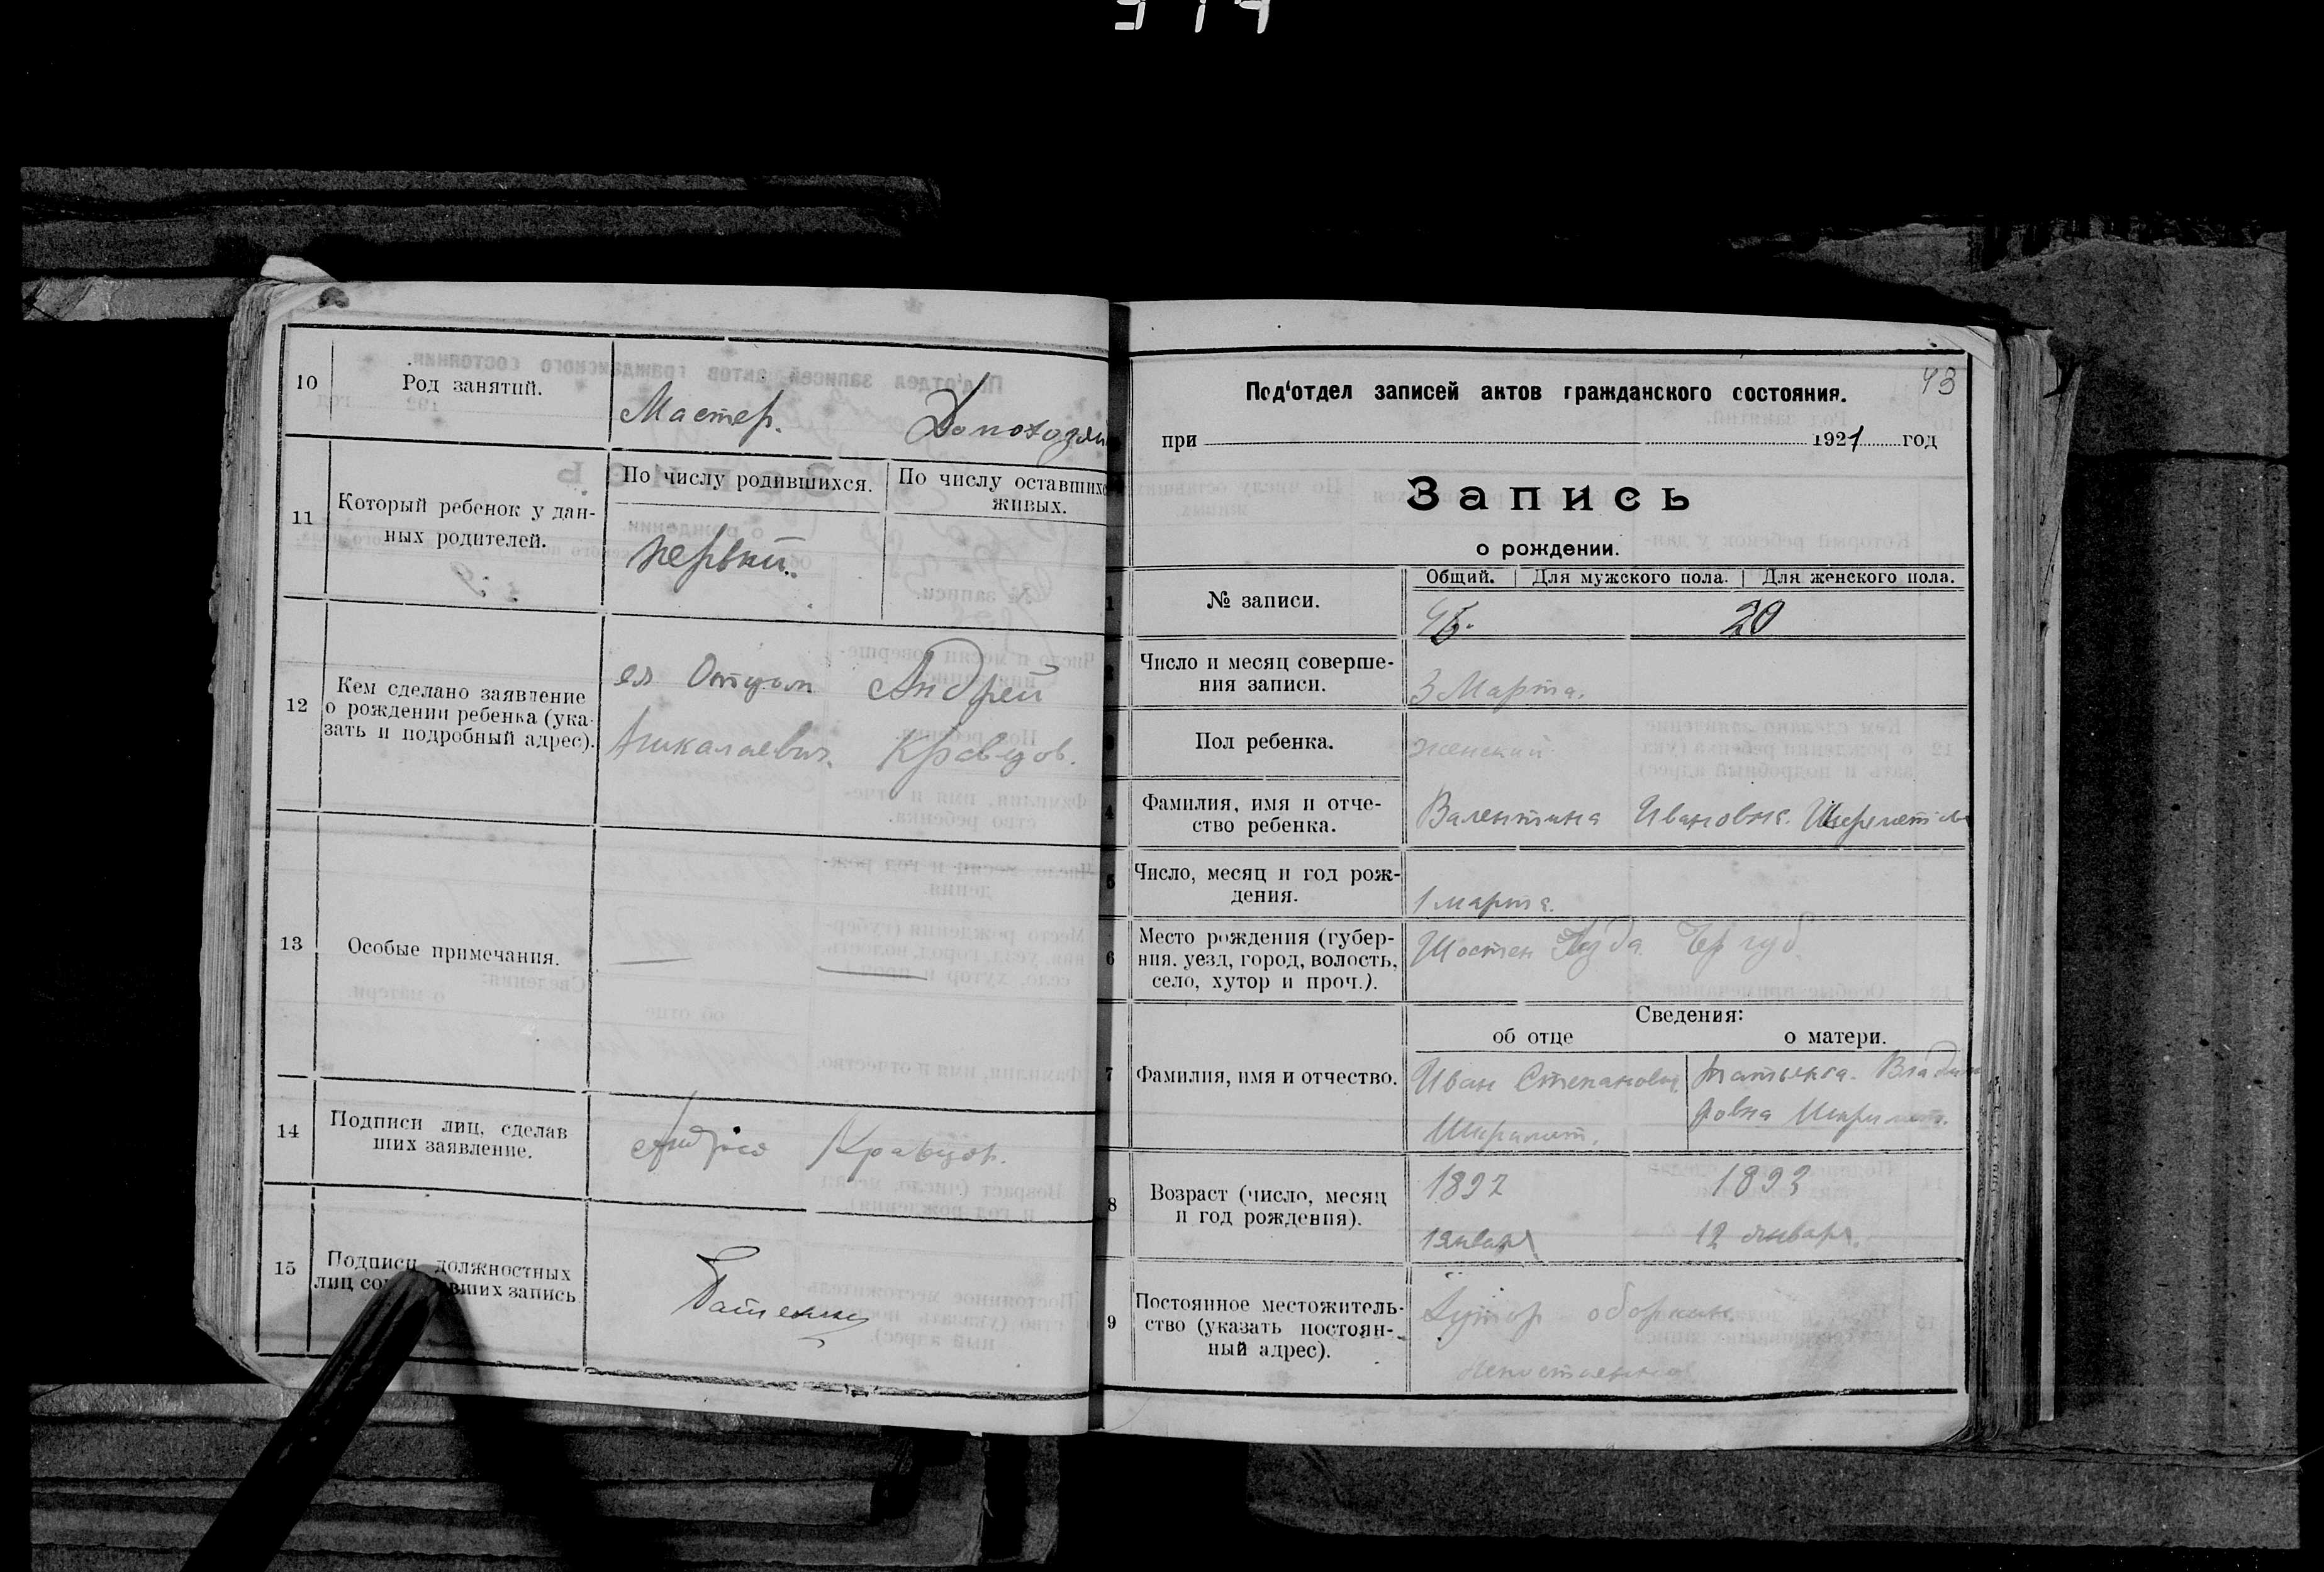 10
Род занятий.
Мастер.
11
Который ребенок у дан-
ных родителей.
По числу родившихся.
По числу оставшихс
живых.
первый.
12
Кем сделано заявление
о рождении ребенка (ука-
зать и подробный адрес).
ея Отцом Андрей
Кравцов.
13
Особые примечания.
14
Подписи лиц, сделав
ших заявление.
Кравцов.
15
Подписи должностных
лиц со вших запись
43
Под‘отдел записей актов гражданского состояния.
при 1921 год
Запись
о рождении.
1
№ записи.
Общий. Для мужского пола. Для женского пола.
20
Число и месяц соверше-
ния записи.
3 Марта.
Пол ребенка.
женский
4
Фамилия, имя и отче-
ство ребенка.
Валентина Ивановна.
5
Число, месяц и год рож-
дения.
1 марта.
6
Место рождения (губер-
ния. уезд, город, волость,
село, хутор и проч.).
Шостен
Сведения:
об отце
о матери.
7
Фамилия, имя и отчество.
Иван Степанович
Татьяна. Влади
ровна
8
Возраст (число, месяц
и год рождения).
1892
1893
12 января.
9
Постоянное местожитель-
ство (указать постоян-
ный адрес).
Хутор